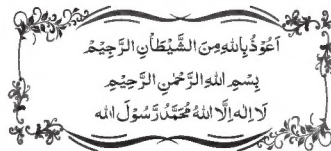 اَعُوْذُ بِاللّٰهِ مِنَ الشَّيْطَانِ الرَّجِيْمِ
بِسْمِ اللّٰهِ الرَّحْمٰنِ الرَّحِيْمِ
لَا اِلٰهَ اِلَّا اللّٰهُ مُحَمَّدٌ رَّسُوْلَ اللّٰه